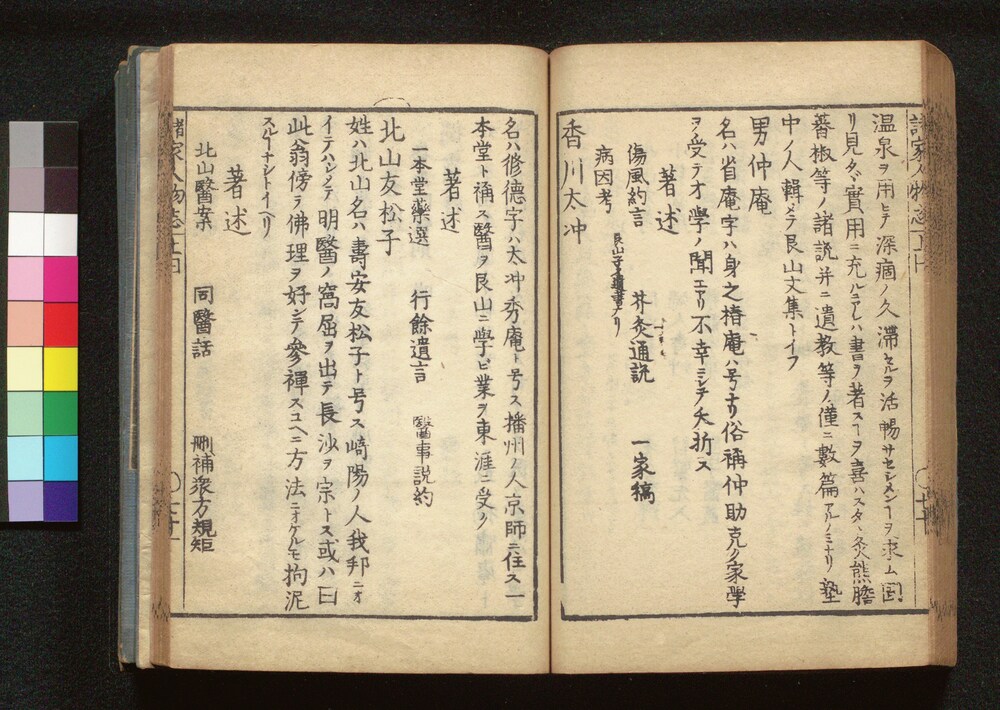 諸家人物志 上
温泉ヲ用ヒテ深痼ノ久滞セルヲ活暢サセシメンヿヲ求ム
リ見タヾ實用ニ充ルニアレハ書ヲ著スヿヲ喜ハスタヽ灸熊膽
蕃椒等ノ諸説并ニ遺教等ノ僅ニ數篇アルノミナリ塾
中ノ人輯メテ艮山文集トイフ
男仲庵
名ハ省庵字ハ身之椿庵ハ号ナリ俗稱仲助克ク家學
ヲ受テオ學ノ聞エアリ不幸ニシテ夭折ス
著述
傷風約言 艮山子之遺書ナリ 芥灸通説 一家稿
病因考
香川太冲
名ハ修德字ハ太冲秀庵ト号ス播州ノ人京師ニ住ス一
本堂ト稱ス醫ヲ艮山ニ學ヒ業ヲ東涯ニ受ク
著述
一本堂藥選 行餘遺言 醫事説約
北山友松子
姓ハ北山名ハ壽安友松子ト号ス崎陽ノ人我邦ニオ
イテハシメテ明醫ノ窩屈ヲ出テ長沙ヲ宗トス或ハ曰
此翁傍ラ佛理ヲ好シテ參禪スユヘニ方法ニオケルモ拘泥
スルヿナシトイヘリ
著述
北山醫案 同醫話 刪補衆方規矩
諸家人物志 上